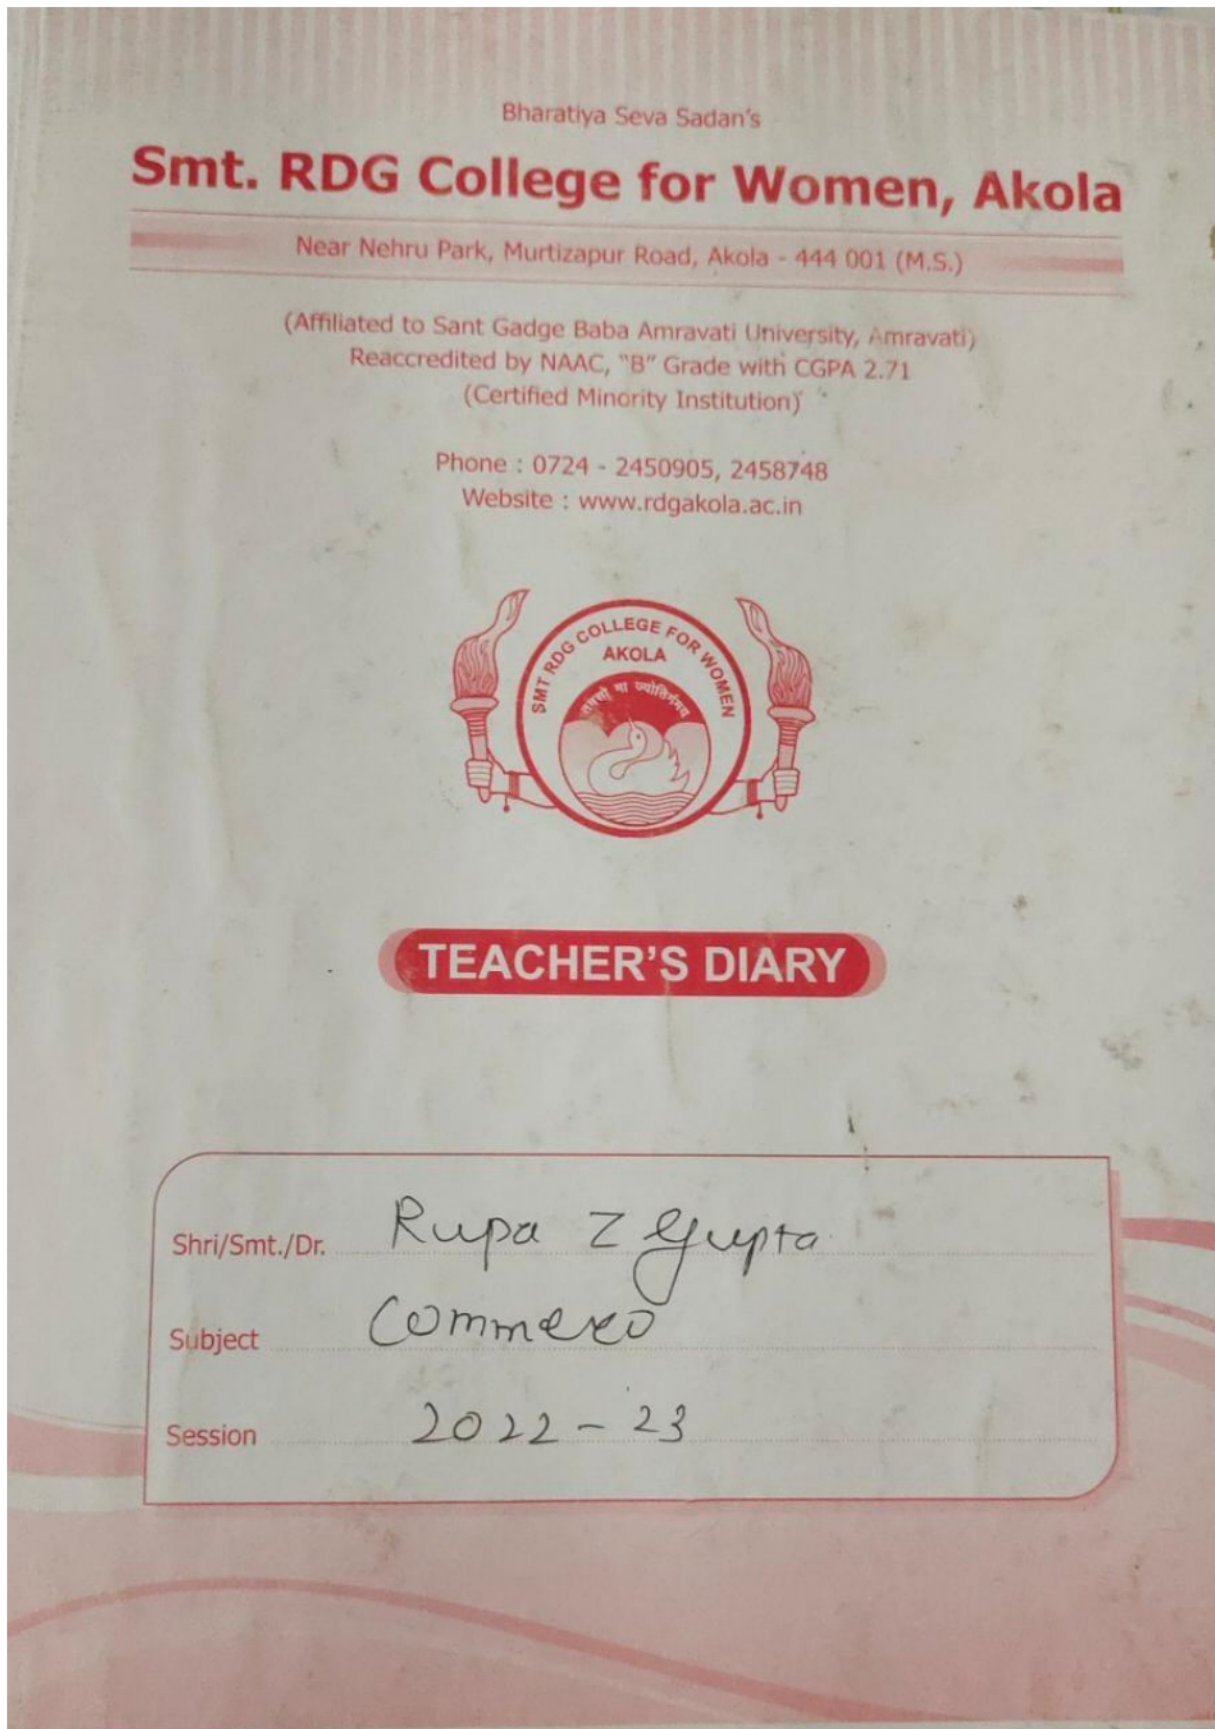 Bharatiya Seva Sadan's
Smt. RDG College for Women, Akola
Near Nehru Park, Murtizapur Road, Akola - 444 001 (M.S.)
(Affiliated to Sant Gadge Baba Amravati University, Amravati)
Reaccredited by NAAC, "B" Grade with CGPA 2.71
(Certified Minority Institution)
Phone : 0724 - 2450905, 2458748
Website : www.rdgakola.ac.in
SMT RDG COLLEGE FOR WOMEN
AKOLA
तमसो मा ज्योतिर्गमय
TEACHER'S DIARY
Shri/Smt./Dr. Rupa Z Gupta
Subject Commerce
Session 2022-23